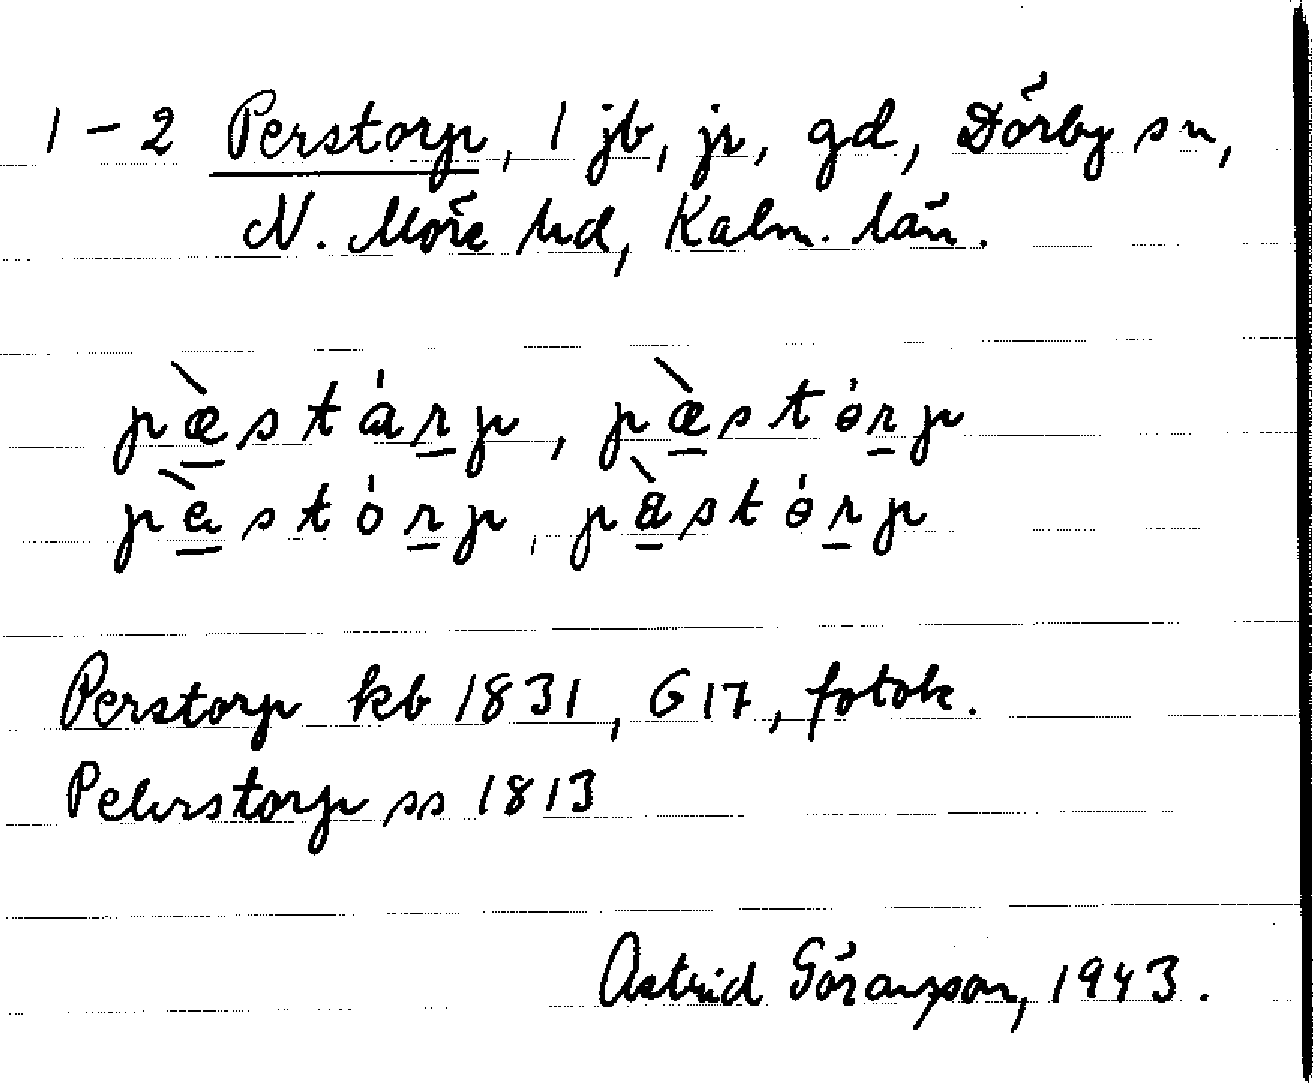 1-2 Perstorp, 1 jb, jr, gd, Dörby sn,
N. Möre hd, Kalm. län.
pæ̀stárp, pæ̀stɵ́rp
pèstórp, pàstɵ́rp
Perstorp kb 1831, G17, fotok.
Pehrstorp ss 1813
Astrid Göransson, 1943.